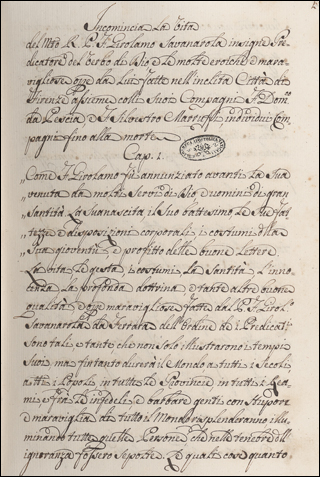 Incomincia La Vita
del Mto R. P. F. Girolamo Savanarola insigne Pre-
dicatore del Verbo di Dio, e Le molte eroiche, e mara-
vigliose opere da Lui fatte nell'inclita Città di
Firenze assieme colli Suoi Compagni F. Domco
da Pescia, e F. Silvestro Maruffi individui Com-
pagni fino alla morte
Cap. 1.
Come F. Girolamo fù annunziato avanti La Sua
venuta da molti Servi di Dio, e uomini di gran
Santità. La Sua nascita, il Suo battesimo, Le Sue fat-
tezze, e disposizioni corporali, i costumi della
Sua gioventù, e profitto delle buone Lettere
La vita, Le gesta, i costumi, La Santità, L'inno-
cenza, La profonda dottrina, e tante altre buone
qualità, e opere maravigliose fatte dal P. F. Girolo
Savanarola da Ferrara dell'Ordine de' Predicatri
Sono tali, e tante che non solo illustrarono i tempi
Suoi, ma fintanto durerà il Mondo a tutti i Secoli,
a tti i Popoli, in tutte Le Provincie, in tutti i Rea-
mi, e frà Le infedeli, e barbare genti con Stupore,
e maraviglia di tutto il Mondo risplenderanno, illu-
minando tutte quelle Persone, che nelle tenebre dell'
ignoranza fossero Sepolte. E quali cose quanto